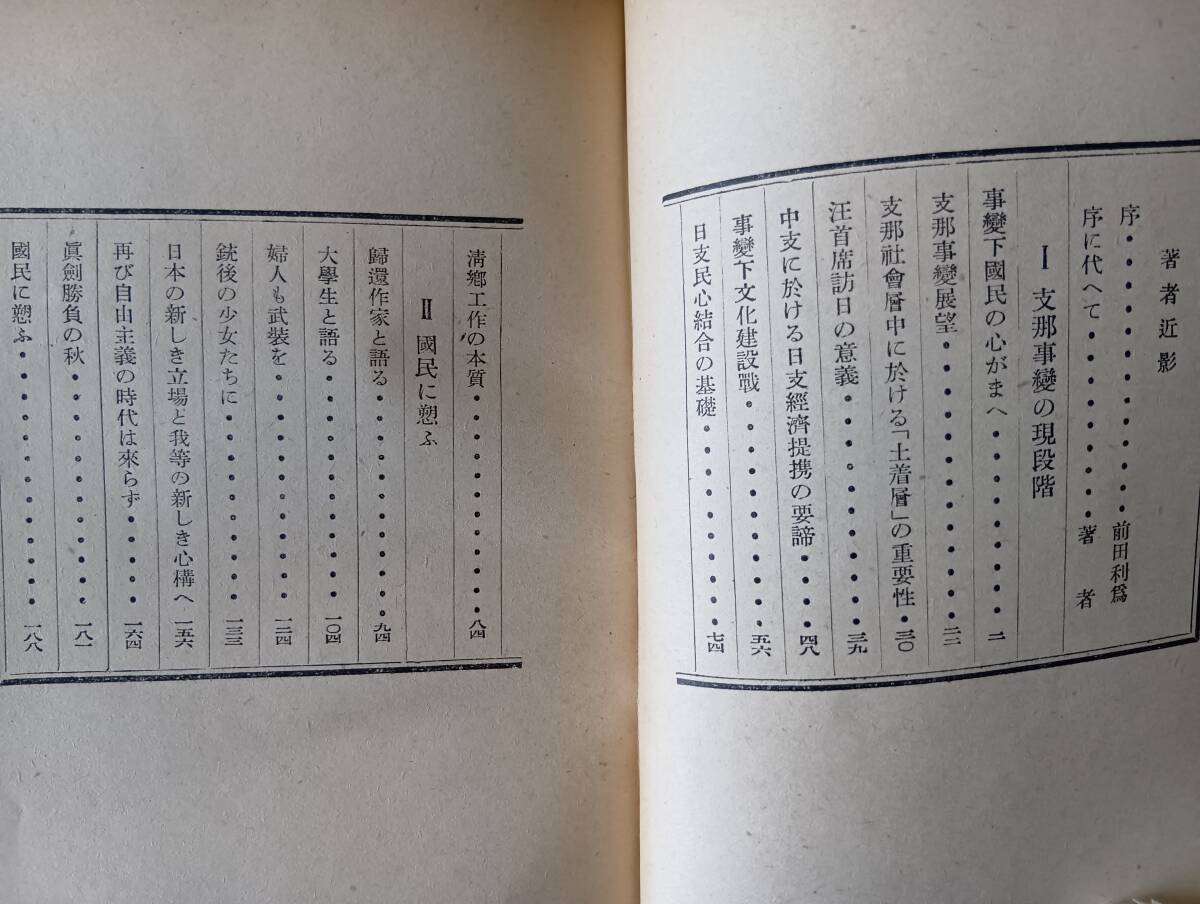 著者近影
序・・・・・・・・・・・前田利爲
序に代へて・・・・・・・・・著者
Ⅰ 支那事變の現段階
事變下國民の心がまへ・・・・・・・・・二
支那事變展望・・・・・・・・・・・・・二二
支那社會層中に於ける「土着層」の重要性・三〇
汪首席訪日の意義・・・・・・・・・・・三九
中支に於ける日支經濟提携の要諦・・・・四八
事變下文化建設戰・・・・・・・・・・・五六
日支民心結合の基礎・・・・・・・・・・七四
淸鄕工作の本質・・・・・・・・・・・・八四
Ⅱ 國民に愬ふ
歸還作家と語る・・・・・・・・・・・・九四
大學生と語る・・・・・・・・・・・・・一〇四
婦人も武裝を・・・・・・・・・・・・・一二四
銃後の少女たちに・・・・・・・・・・・一三三
日本の新しき立場と我等の新しき心構へ・一五六
再び自由主義の時代は來らず・・・・・・一六四
眞劍勝負の秋・・・・・・・・・・・・・一八一
國民に愬ふ・・・・・・・・・・・・・・一八八